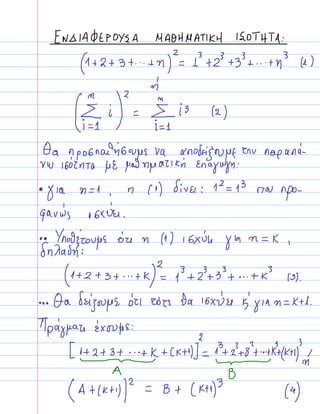 ΕΝΔΙΑΦΕΡΟΥΣΑ ΜΑΘΗΜΑΤΙΚΗ ΙΣΟΤΗΤΑ:
(1+2+3+...+n)² = 1³+2³+3³+...+n³ (1)
ή
(∑_{i=1}^{n} i)² = ∑_{i=1}^{n} i³ (2)
Θα προσπαθήσουμε να αποδείξουμε την παραπά-
νω ισότητα με μαθηματική επαγωγή:
• για n=1, η (1) δίνει: 1²=1³ που προ-
φανώς ισχύει.
•• Υποθέτουμε ότι η (1) ισχύει για n=κ,
δηλαδή:
(1+2+3+...+κ)² = 1³+2³+3³+...+κ³ (3).
••• Θα δείξουμε ότι τότε θα ισχύει & για n=κ+1.
Πράγματι έχουμε:
[1+2+3+...+κ+(κ+1)]² = 1³+2³+3³+...+κ³+(κ+1)³ ή
A B
(A+(κ+1))² = B + (κ+1)³ (4)